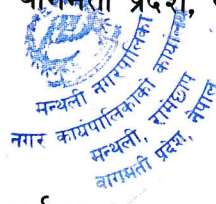 बागमती प्रदेश,
मन्थली नगरपालिका
नगर कार्यपालिकाको कार्यालय
मन्थली, रामेछाप
बागमती प्रदेश, नेपाल